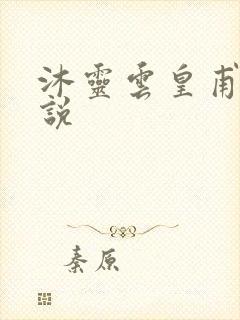 沐靈雲皇甫
說
秦原